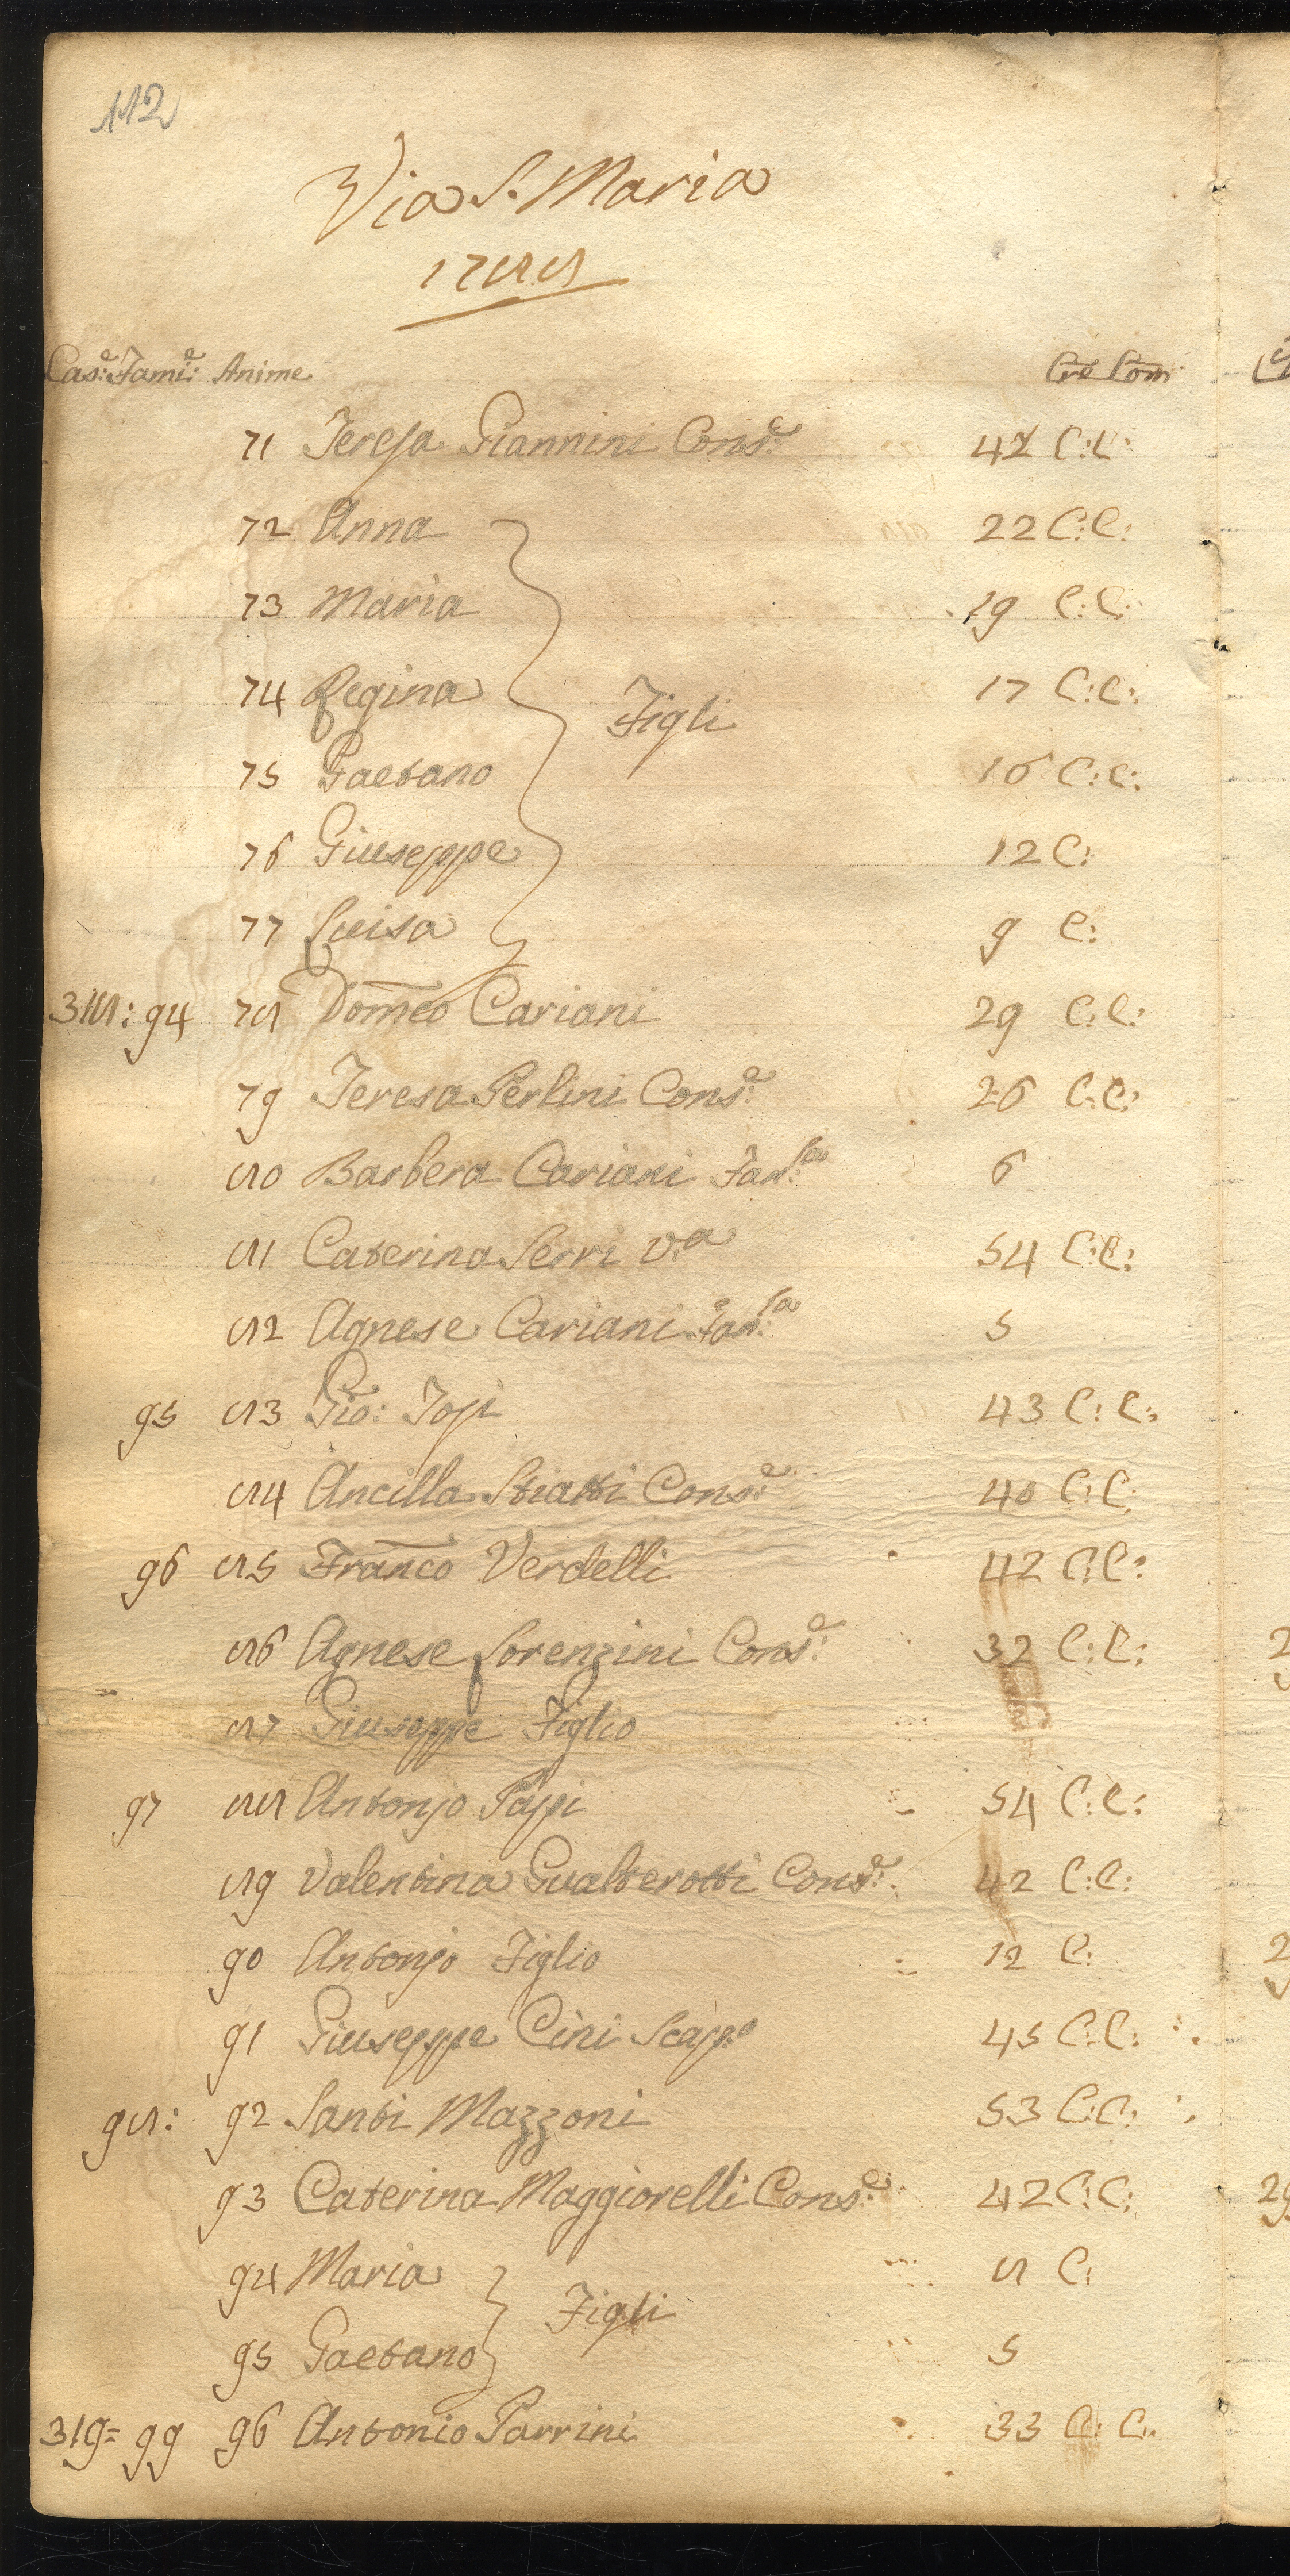 112
Via S. Maria
1788
Cas:e Fami:e Anime Cre Com
71 Teresa Giannini Cons:e 47 C:C:
72 Anna 22 C:C:
73 Maria 19 C:C:
74 Regina 17 C:C:
Figli
75 Gaetano 16 C:C:
76 Giuseppe 12 C:
77 Luisa 9 C:
318: 94 78 Domeco Cariani 29 C:C:
79 Teresa Perlini Cons:e 26 C:C:
80 Barbera Cariani Fan:la 6
81 Caterina Serri v:a 54 C:C:
82 Agnese Cariani Fan:la 5
95 83 Gio: Topi 43 C:C:
84 Ancilla Stiatti Cons:e 40 C:C:
96 85 Franco Verdelli 42 C:C:
86 Agnese Lorenzini Cons:e 32 C:C:
87 Giuseppe Figlio
97 88 Antonjo Papi 54 C:C:
89 Valentina Gualterotti Cons:e 42 C:C:
90 Antonjo Figlio 12 C:
91 Giuseppe Cini Scap:o 45 C:C:
98: 92 Santi Mazzoni 53 C:C:
93 Caterina Maggiorelli Cons:e 42 C:C:
94 Maria 8 C:
Figli
95 Gaetano 5
319= 99 96 Antonio Parrini 33 C:C: